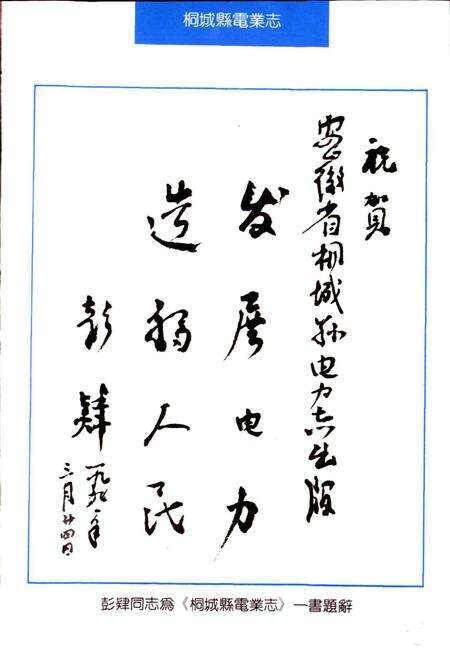 桐城縣電業志
祝賀
安徽省桐城县电力志出版
发展电力
造福人民
彭肄
一九九二年
三月廿四日
彭肄同志爲《桐城縣電業志》一書題辭